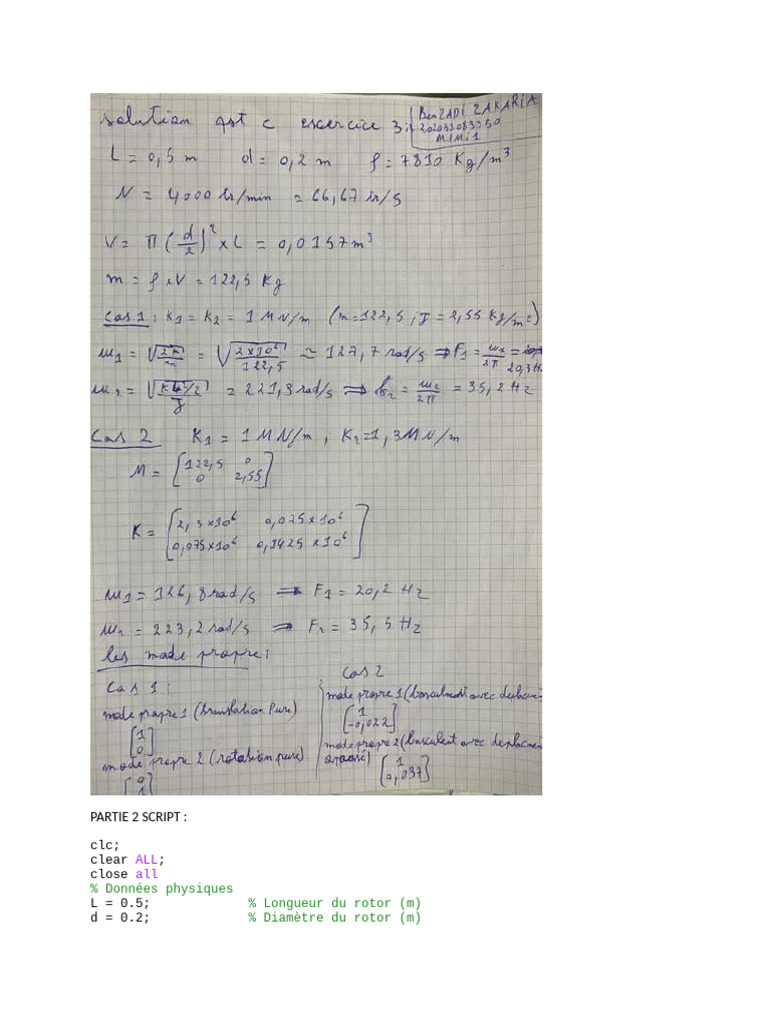 solution qst c exercice 3:
BenZADI ZAKARIA
202032083350
M1Mi1
L = 0,5 m d = 0,2 m ρ = 7810 Kg/m³
N = 4000 tr/min = 66,67 tr/s
V = π (d/2)² × L = 0,0157 m³
m = ρ × V = 122,5 Kg
Cas 1 : K₁ = K₂ = 1 MN/m (m=122,5 ; J = 2,55 Kg/m²)
ω₁ = √(2K/m) = √(2×10⁶/122,5) ≈ 127,7 rad/s ⇒ F₁ = ω₁/2π = 20,3 H
= 221,3 rad/s ⇒ f₂ = ω₂/2π = 35,2 Hz
Cas 2 K₁ = 1 MN/m , K₂=1,3MN/m
M = [122,5 0
0 2,55]
K = [2,3×10⁶ 0,075×10⁶
0,075×10⁶ 0,1425×10⁶]
ω₁ = 126,8 rad/s ⇒ F₁ = 20,2 Hz
ω₂ = 223,2 rad/s ⇒ F₂ = 35,5 Hz
les mode propre :
Cas 1 :
mode propre 1 (translation Pure)
[1
0]
mode propre 2 (rotation pure)
[0
1
Cas 2
mode propre 1 (basculment avec deplacmen
[1
-0,022]
mode propre 2 (basculent avec deplacmen
[1
0,037]
PARTIE 2 SCRIPT :
clc;
clear ALL;
close all
% Données physiques
L = 0.5; % Longueur du rotor (m)
d = 0.2; % Diamètre du rotor (m)